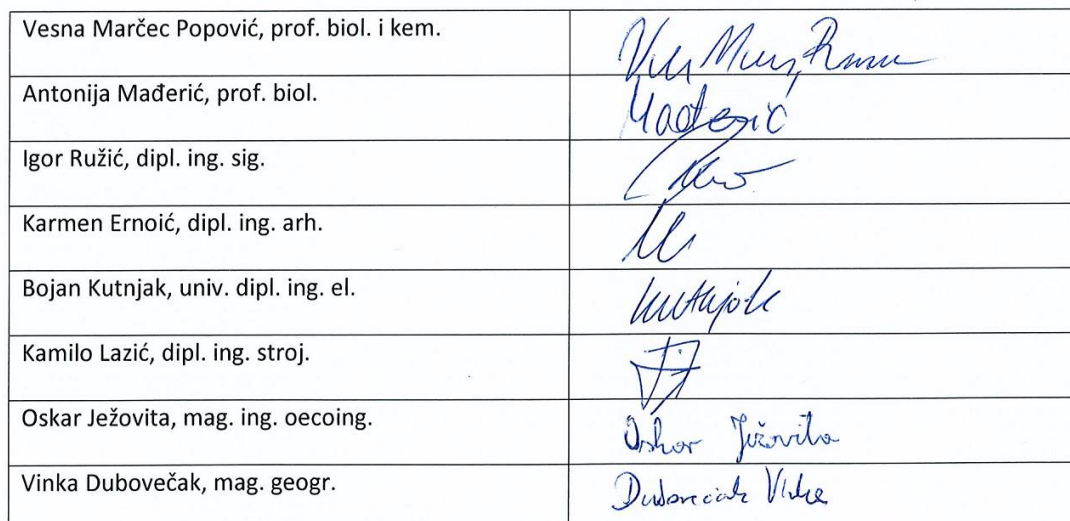 Vesna Marčec Popović, prof. biol. i kem.
Antonija Mađerić, prof. biol.
Mađerić
Igor Ružić, dipl. ing. sig.
Karmen Ernoić, dipl. ing. arh.
Bojan Kutnjak, univ. dipl. ing. el.
Kutnjak
Kamilo Lazić, dipl. ing. stroj.
Oskar Ježovita, mag. ing. oecoing.
Oskar Ježovita
Vinka Dubovečak, mag. geogr.
Dubovečak Vinka